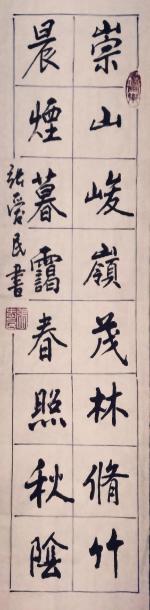 崇山峻嶺茂林脩竹
晨煙暮靄春照秋陰
張愛民書